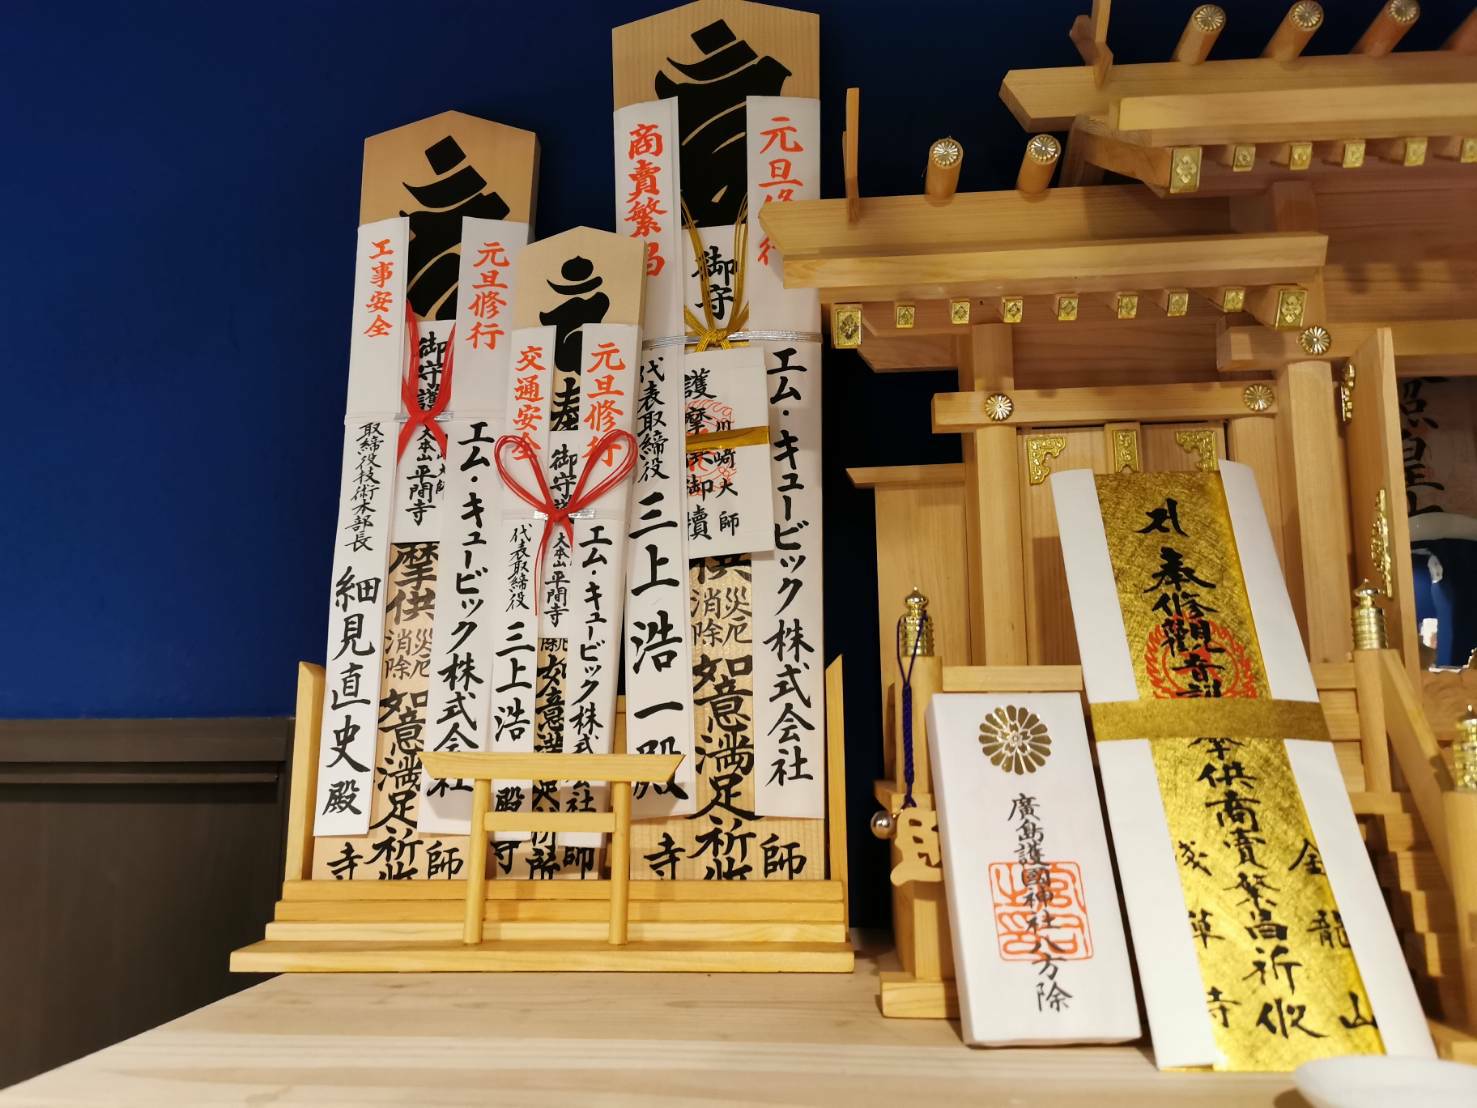 工事安全
取締役技術本部長
細見直史殿
御守護
大本山
平間寺
摩供
災厄
消除
如意満足祈
寺
師
元旦修行
エム・キュービック株式会社
交通安全
代表取締役
三上浩
殿
御守護
大本山
平間寺
如意満足祈所
師
元旦修行
エム・キュービック株式会社
商賣繁昌
代表取締役
三上浩一殿
御守
護摩
御牘
川崎大師
供
災厄
消除
如意満足祈
寺
師
元旦修行
エム・キュービック株式会社
廣島護國神社八方除
奉修觀音
摩供商賣繁昌祈攸
金龍山
浅草寺